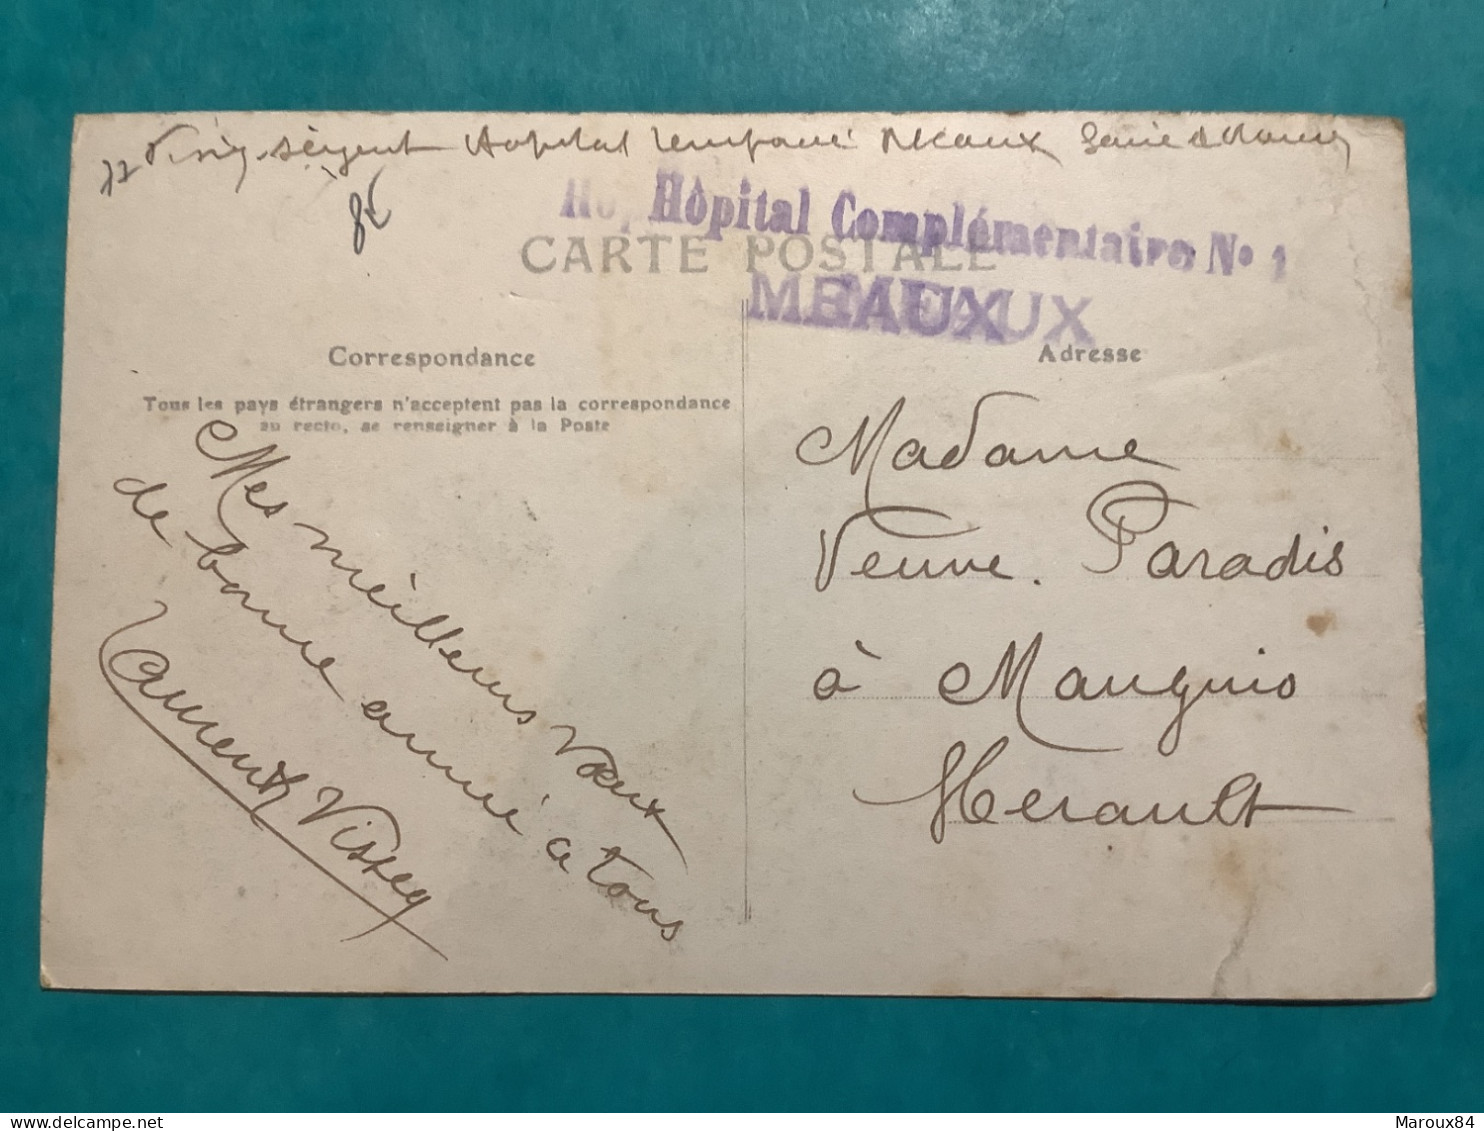 sergent Hopital temporaire Meaux Seine & Marne
8f
Hôpital Complémentaire No 1
MEAUX
CARTE POSTALE
Correspondance
Adresse
Tous les pays étrangers n'acceptent pas la correspondance
au recto, se renseigner à la Poste
Mes meilleurs vœux
de bonne année a tous
Laurent Vissecq
Madame
Veuve Paradis
à Mauguio
Herault
Maroux84